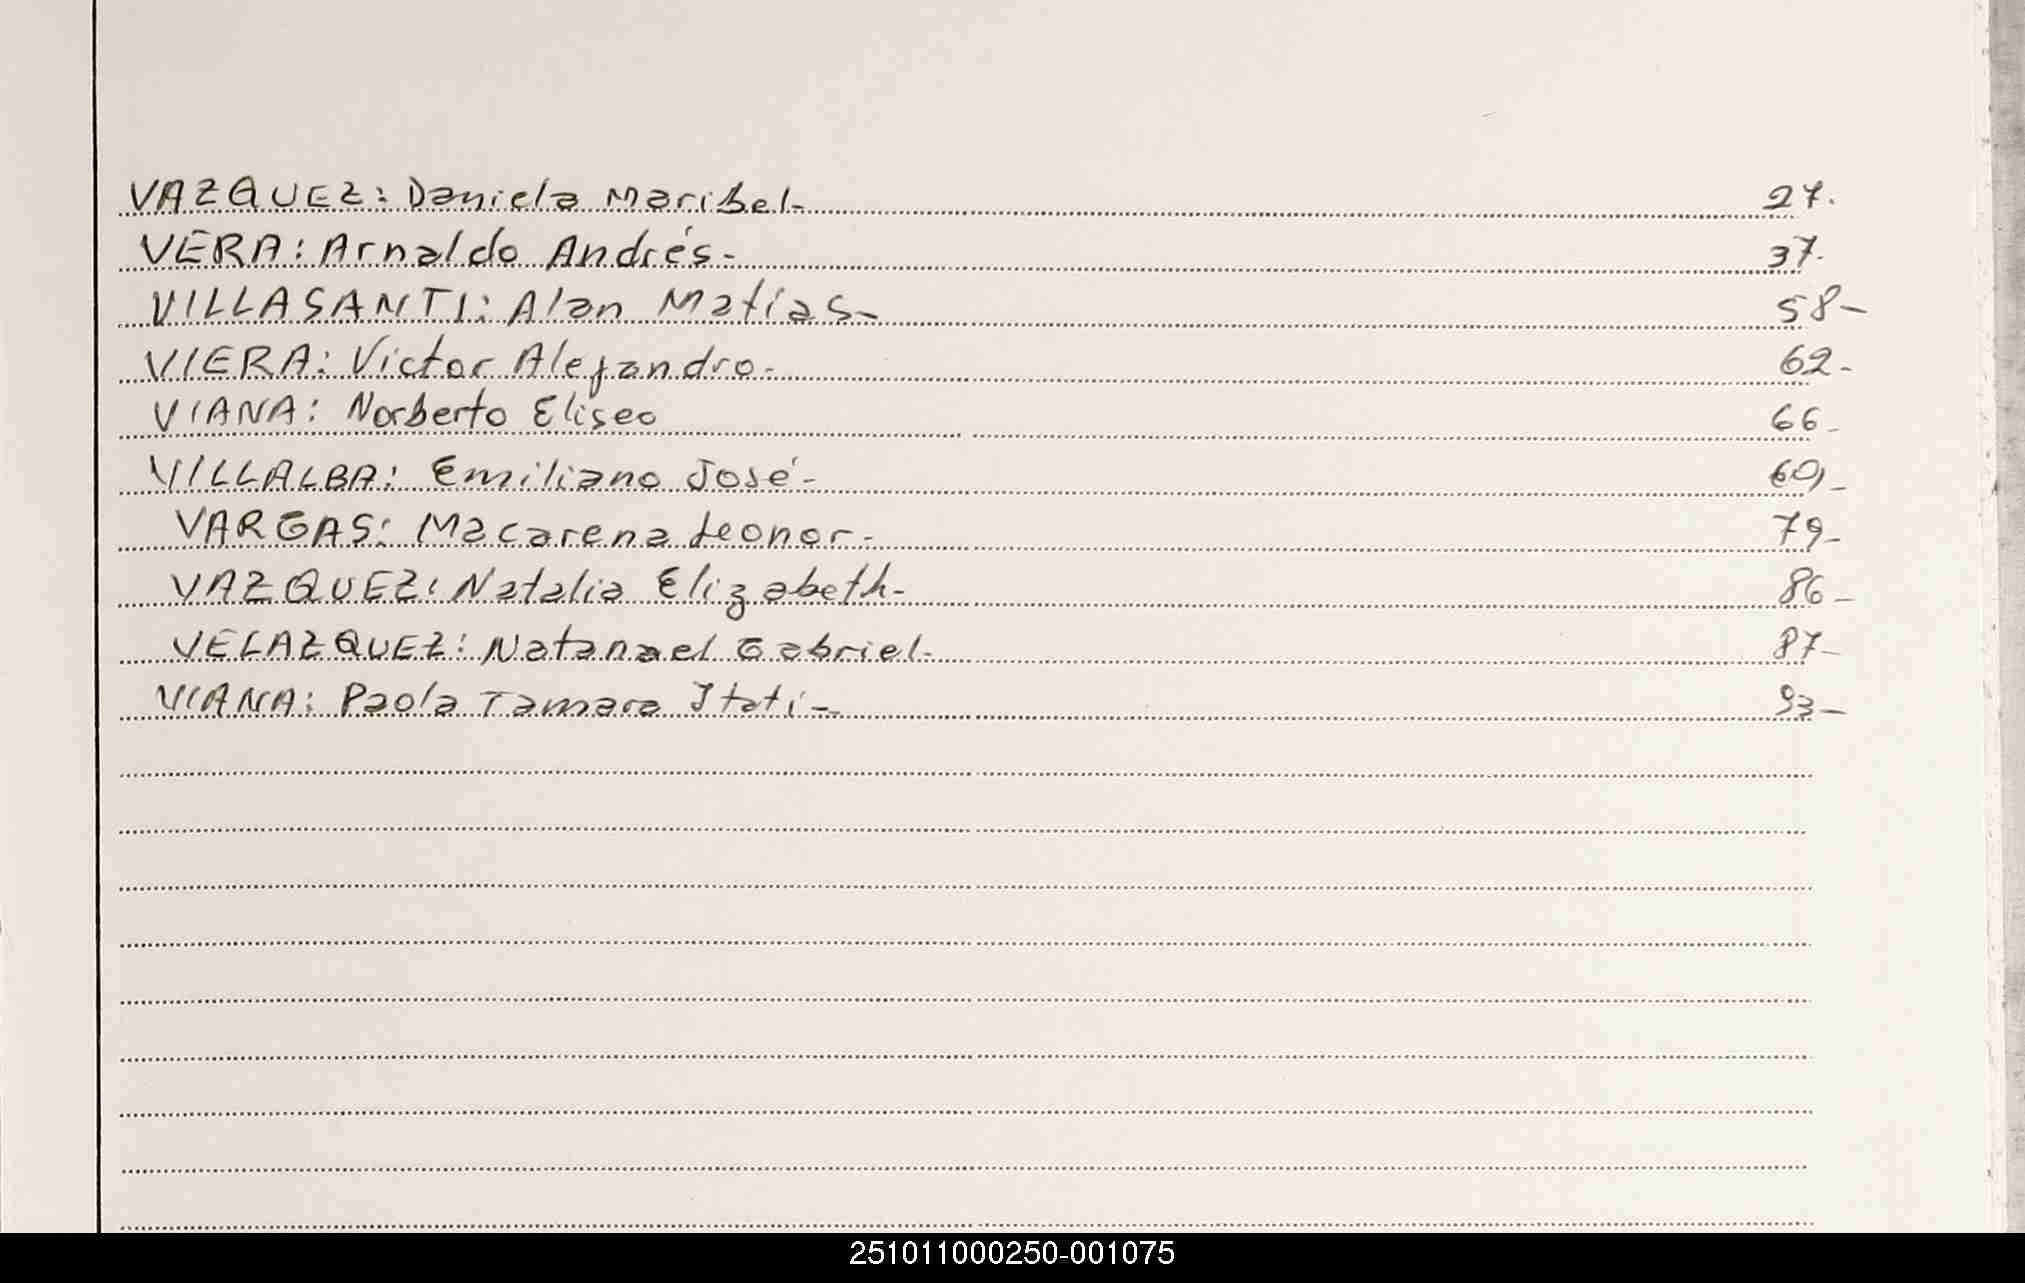 VAZQUEZ: Daniela Maribel- 27.
VERA: Arnaldo Andrés- 37.
VILLASANTI: Alan Matías- 58-
VIERA: Victor Alejandro- 62-
VIANA: Norberto Eliseo 66-
VILLALBA: Emiliano José-
VARGAS: Macarena Leonor- 79-
VAZQUEZ: Natalia Elizabeth- 86-
VELAZQUEZ: Natanael Gabriel- 87-
VIANA: Paola Tamara Itatí- 93-
251011000250-001075